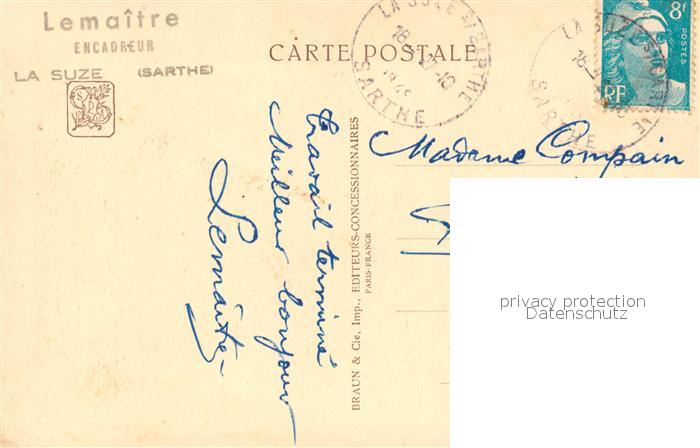 Lemaître
ENCADREUR
LA SUZE (SARTHE)
CARTE POSTALE
LA SUZE S/ SARTHE
18
1948
SARTHE
8f
POSTES
RF
LA SUZE
18
SARTHE
travail terminé
Meilleur bonjour
Lemaître
BRAUN & Cie, Imp., EDITEURS-CONCESSIONNAIRES
PARIS-FRANCE
Madame Compain
privacy protection
Datenschutz